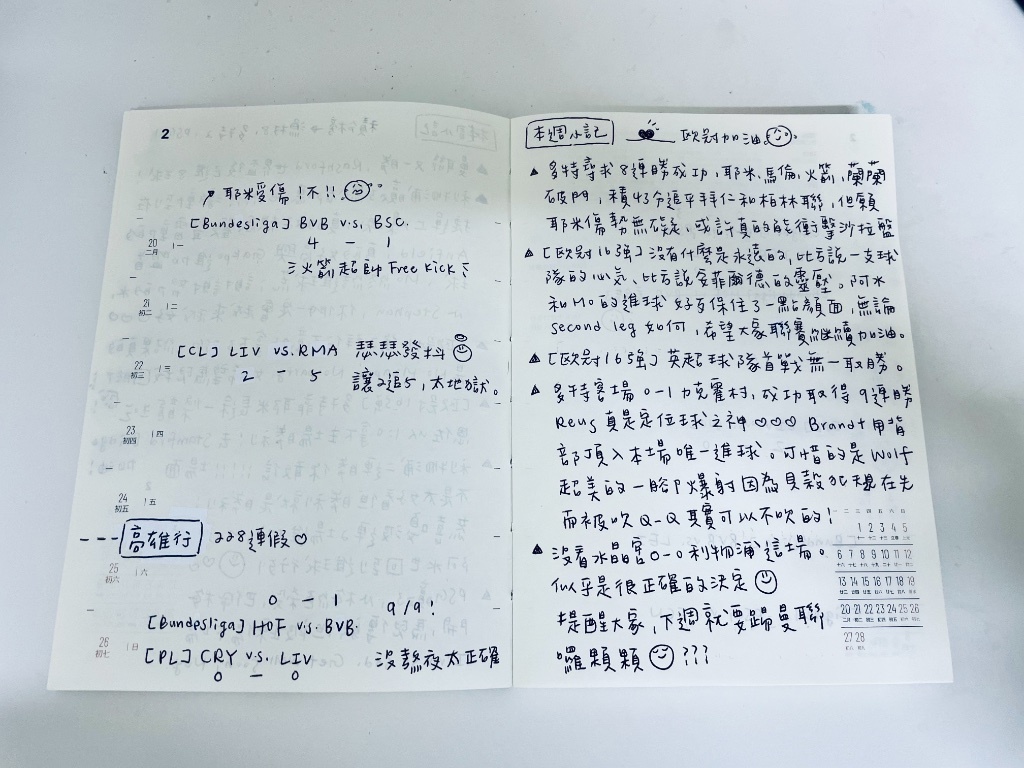 2
耶米受傷！不！！
[Bundesliga] BVB v.s. BSC.
20 一
二月
4 - 1
火箭超屌 Free Kick
21 二
初二
[CL] LIV vs. RMA 瑟瑟發抖
22 三
初三
2 - 5 讓2追5,太地獄。
23 四
初四
24 五
初五
高雄行 228連假♡
25 六
初六
0 - 1 9/9!
[Bundesliga] HOF v.s. BVB.
26 日
初七
[PL] CRY v.s. LIV 沒熬夜太正確
0 - 0
本週小記 歐冠加油
▲多特尋求8連勝成功,耶米、馬倫、火箭、蘭蘭
破門,積43分追平拜仁和柏林聯,但願
耶米傷勢無礙,或許真的能衝擊沙拉盤
▲[歐冠16強]沒有什麼是永遠的,比方說一支球
隊的心氣、比方說安菲爾德的靈壓。阿水
和Mo的進球好歹保住了一點顏面,無論
second leg 如何,希望大家聯賽繼續加油。
▲[歐冠16強]英超球隊首戰無一取勝。
▲多特賽場0-1力克霍村,成功取得9連勝
Reus真是定位球之神♡♡♡ Brandt 用背
部頂入本場唯一進球。可惜的是Wolf
超美的一腳爆射因為貝殼犯規在先
而被吹Q-Q其實可以不吹的!
▲沒看水晶宮0-0利物浦這場。
似乎是很正確的決定
提醒大家,下週就要踢曼聯
囉顆顆 ???
一 二 三 四 五 六 日
1 2 3 4 5
6 7 8 9 10 11 12
13 14 15 16 17 18 19
20 21 22 23 24 25 26
27 28